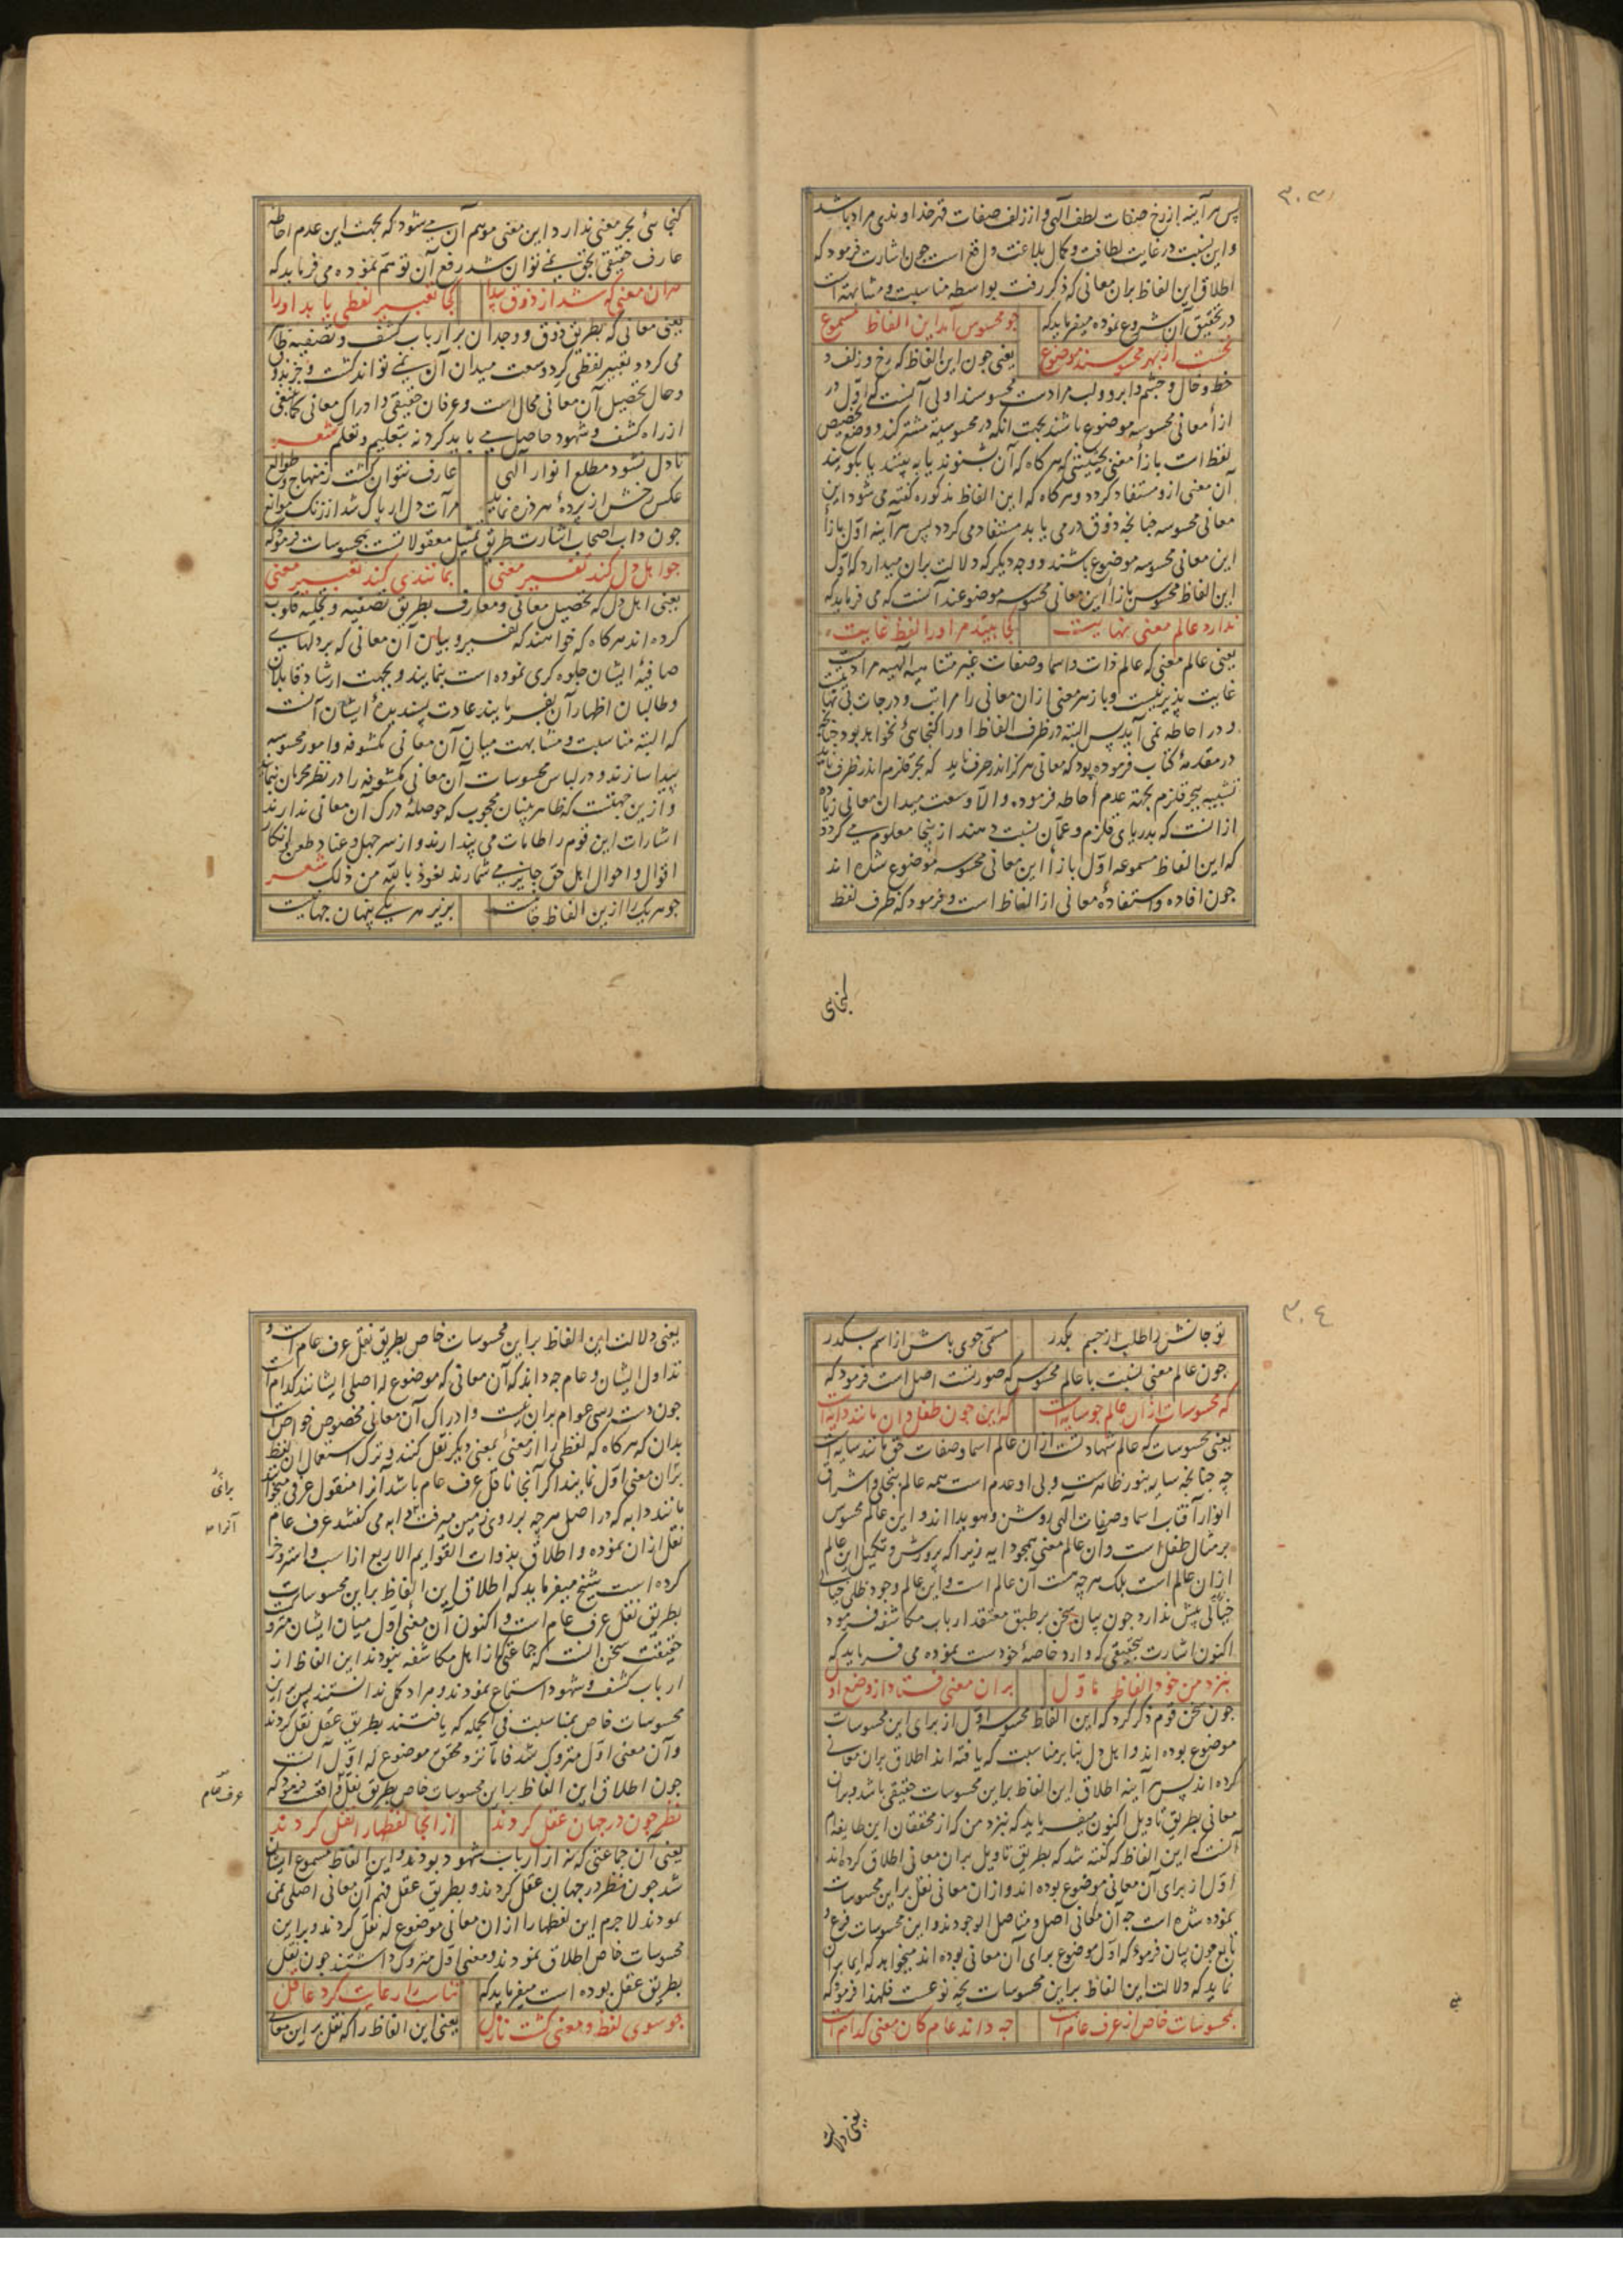 ۳۰۳
پس هر آینه از رخ صفات لطف الهی و از زلف صفات قهر خداوندی مراد باشد
و این نسبت در غایت لطافت و کمال بلاغت واقع است چون اشارت فرمود که
اطلاق این الفاظ بران معانی که ذکر رفت بواسطه مناسبت و مشابهتست
در تحقیق آن شروع نموده میفرماید که
چو محسوس آمد این الفاظ مسموع
نخست از بهر محسوسند موضوع
یعنی چون این الفاظ که رخ و زلف و
خط و خال و چشم و ابرو و لب مرادست محسوسند اولی آنست که اول در
ازأ معانی محسوسه موضوع باشند بجهت آنکه در محسوسیة مشترکند و وضع تخصیص
لفظ است بازأ معنی بحیثیتی که هرگاه که آن بشنوند یا به بینند یا بگویند
آن معنی ازو مستفاد کردد و هرگاه که این الفاظ مذکوره گفته می شود این
معانی محسوسه چنانچه ذوق در می یابد مستفاد می کردد پس هر آینه اول بازأ
این معانی محسوسه موضوع باشند و وجه دیگر که دلالت بران میدارد که اول
این الفاظ محسوس بازأ این معانی محسوسه موضوعند آنست که می فرماید که
ندارد عالم معنی نهایت
کجا بیند مر او را لفظ غایت
یعنی عالم معنی که عالم ذات و اسما و صفات غیر متناهیه الهیه مرادست
غایت پذیر نیست و باز هر معنی ازان معانی را مراتب و درجات بی نهایت
و در احاطه نمی آید پس البته در ظرف الفاظ او را گنجائی نخواهد بود چنانچه
در مقدمهٔ کتاب فرموده بود که معانی هرگز اندر حرف ناید که بحر قلزم اندر ظرف ناید
تشبیه ببحر قلزم بجهة عدم احاطه فرموده و الا وسعت میدان معانی زیاده
ازانست که بدریای قلزم و عمان نسبت دهند از ینجا معلوم می کردد
که این الفاظ مسموعه اول بازأ این معانی محسوسه موضوع شده اند
چون افاده و استفادهٔ معانی از الفاظ است و فرمود که ظرف لفظ
گنجائی
گنجائی بحر معنی ندارد این معنی موهم آن می شود که بجهت این عدم احاطه
عارف حقیقی بحق نمی توان شد رفع آن توهم نموده می فرماید که
هران معنی که شد از ذوق پیدا
کجا تعبیر لفظی یابد او را
یعنی معانی که بطریق ذوق و وجدان بر ارباب کشف و تصفیه ظاهر
می کردد تعبیر لفظی کرد وسعت میدان آن نمی تواند کشت و جز بذوق
و حال تحصیل آن معانی محالست و عرفان حقیقی و ادراک معانی کماینبغی
از راه کشف و شهود حاصل می باید کرد نه بتعلیم و تعلم شعر
تا دل نشود مطلع انوار الهی
عارف نتوان کشت ز منهاج و طوالع
عکس رخش از پردهٔ هر ذره نماید
مرآت دل ار پاک شد از زنگ موانع
چون داب اصحاب اشارت طریق تمثیل معقولاتست بمحسوسات فرمود که
چو اهل دل کند تفسیر معنی
بمانندی کند تعبیر معنی
یعنی اهل دل که تحصیل معانی و معارف بطریق تصفیه و تجلیه قلوب
کرده اند هرگاه که خواهند که تفسیر و بیان آن معانی که بر دلهای
صافیهٔ ایشان جلوه کری نموده است بنمایند و بجهت ارشاد قابلان
و طالبان اظهار آن بفرمایند عادت پسندیدهٔ ایشان آنست
که البته مناسبت و مشابهت میان آن معانی مکشوفه و امور محسوسه
پیدا سازند و در لباس محسوسات آن معانی مکشوفه را در نظر محرمان نمایند
و ازین جهتست که ظاهر بینان محجوب که حوصلهٔ درک آن معانی ندارند
اشارات این قوم را طامات می پندارند و از سر جهل و عناد طعن و انکار
اقوال و احوال اهل حق جایز می شمارند نعوذ بالله من ذلک شعر
چو هر یک را ازین الفاظ جانیست
بزیر هر یکی پنهان جهانیست
۳۰٤
تو جانش را طلب از جسم بگذر
مسمی جوی باش از اسم بگذر
چون عالم معنی نسبت با عالم محسوس که صورتست اصل است فرمود که
که محسوسات ازان عالم چو سایه است
که این چون طفل و آن مانند دایه است
یعنی محسوسات که عالم شهادتست ازان عالم اسما و صفات حق مانند سایه است
چه چنانچه سایه بنور ظاهرست و بی او عدم است همه عالم بتجلی و اشراق
انوار آفتاب اسما و صفات الهی روشن و هویدا اند و این عالم محسوس
بر مثال طفل است و آن عالم معنی همچو دایه زیرا که پرورش و تکمیل این عالم
ازان عالم است بلک هر چه هست آن عالم است و این عالم وجود ظلی خیالی
خیالی بیش ندارد چون بیان سخن بر طبق معتقد ارباب مکاشفه فرمود
اکنون اشارت بتحقیقی که وارد خاصهٔ خودست نموده می فرماید که
بنزد من خود الفاظ ماول
بران معنی فتاد از وضع اول
چون سخن قوم ذکر کرد که این الفاظ محسوسه اول از برای این محسوسات
موضوع بوده اند و اهل دل بنا بر مناسبت که یافته اند اطلاق بران معانی
کرده اند پس هر آینه اطلاق این الفاظ براین محسوسات حقیقی باشد و بران
معانی بطریق تاویل اکنون میفرماید که بنزد من که از محققان این طایفه ام
آنست که این الفاظ که گفته شد که بطریق تاویل بران معانی اطلاق کرده اند
اول از برای آن معانی موضوع بوده اند و ازان معانی نقل براین محسوسات
نموده شده است چه آن معانی اصل و متاصل الوجودند و این محسوسات فرع و
تابع چون بیان فرمود که اول موضوع برای آن معانی بوده اند میخواهد که ایما بران
نماید که دلالت این الفاظ براین محسوسات بچه نوعست فلهذا فرمود که
بمحسوسات خاص از عرف عام است
چه داند عام کان معنی کدام است
یعنی دلالت
یعنی دلالت این الفاظ براین محسوسات خاص بطریق نقل عرف عام است و
تداول ایشان و عام چه داند که آن معانی که موضوع له اصلی ایشانند کدام است
چون دست رسی عوام بران نیست و ادراک آن معانی مخصوص خواص است
بدان که هرگاه که لفظی را از معنی بمعنی دیگر نقل کنند و ترک استعمال آن لفظ
بران معنی اول نمایند اگر آنجا ناقل عرف عام باشد آنرا منقول عرفی میخوانند
مانند دابه که در اصل هر چه بر روی زمین میرفت دابه می گفتند عرف عام
نقل ازان نموده و اطلاق بذوات القوایم الاربع از اسب و استر و خر
کرده است شیخ میفرماید که اطلاق این الفاظ براین محسوسات
بطریق نقل عرف عام است و اکنون آن معنی اول میان ایشان متروکست
حقیقت سخن آنست که جماعتی که از اهل مکاشفه نبودند این الفاظ از
ارباب کشف و شهود استماع نمودند و مراد کمل ندانستند پس براین
محسوسات خاص بمناسبت فی الجمله که یافتند بطریق عقل نقل کردند
و آن معنی اول متروک شد فاما نزد محقق موضوع له اول آنست
چون اطلاق این الفاظ براین محسوسات خاص بطریق نقل واقعست فرمود که
نظر چون در جهان عقل کردند
از آنجا لفظها را نقل کردند
یعنی آن جماعتی که نه از ارباب شهود بودند و این الفاظ مسموع ایشان
شد چون نظر در جهان عقل کردند و بطریق عقل فهم آن معانی اصلی نمی
نمودند لاجرم این لفظها را ازان معانی موضوع له نقل کردند و براین
محسوسات خاص اطلاق نمودند و معنی اول متروک داشتند چون نقل
بطریق عقل بوده است میفرماید که
تناسب را رعایت کرد عاقل
چو سوی لفظ و معنی کشت نازل
یعنی این الفاظ را که نقل براین معانی
برای
آنرا
عرف عام